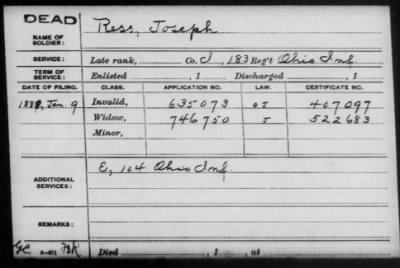 DEAD
NAME OF SOLDIER: Ress, Joseph
SERVICE: Late rank, Co. I, 183 Reg't Ohio Inf
TERM OF SERVICE: Enlisted , 1 Discharged , 1
DATE OF FILING. CLASS. APPLICATION NO. LAW. CERTIFICATE NO.
Jan. 9 Invalid, 635073 407097
Widow, 746750 522683
Minor,
ADDITIONAL SERVICES: E, 104 Ohio Inf.
REMARKS:
Died , 1 , at